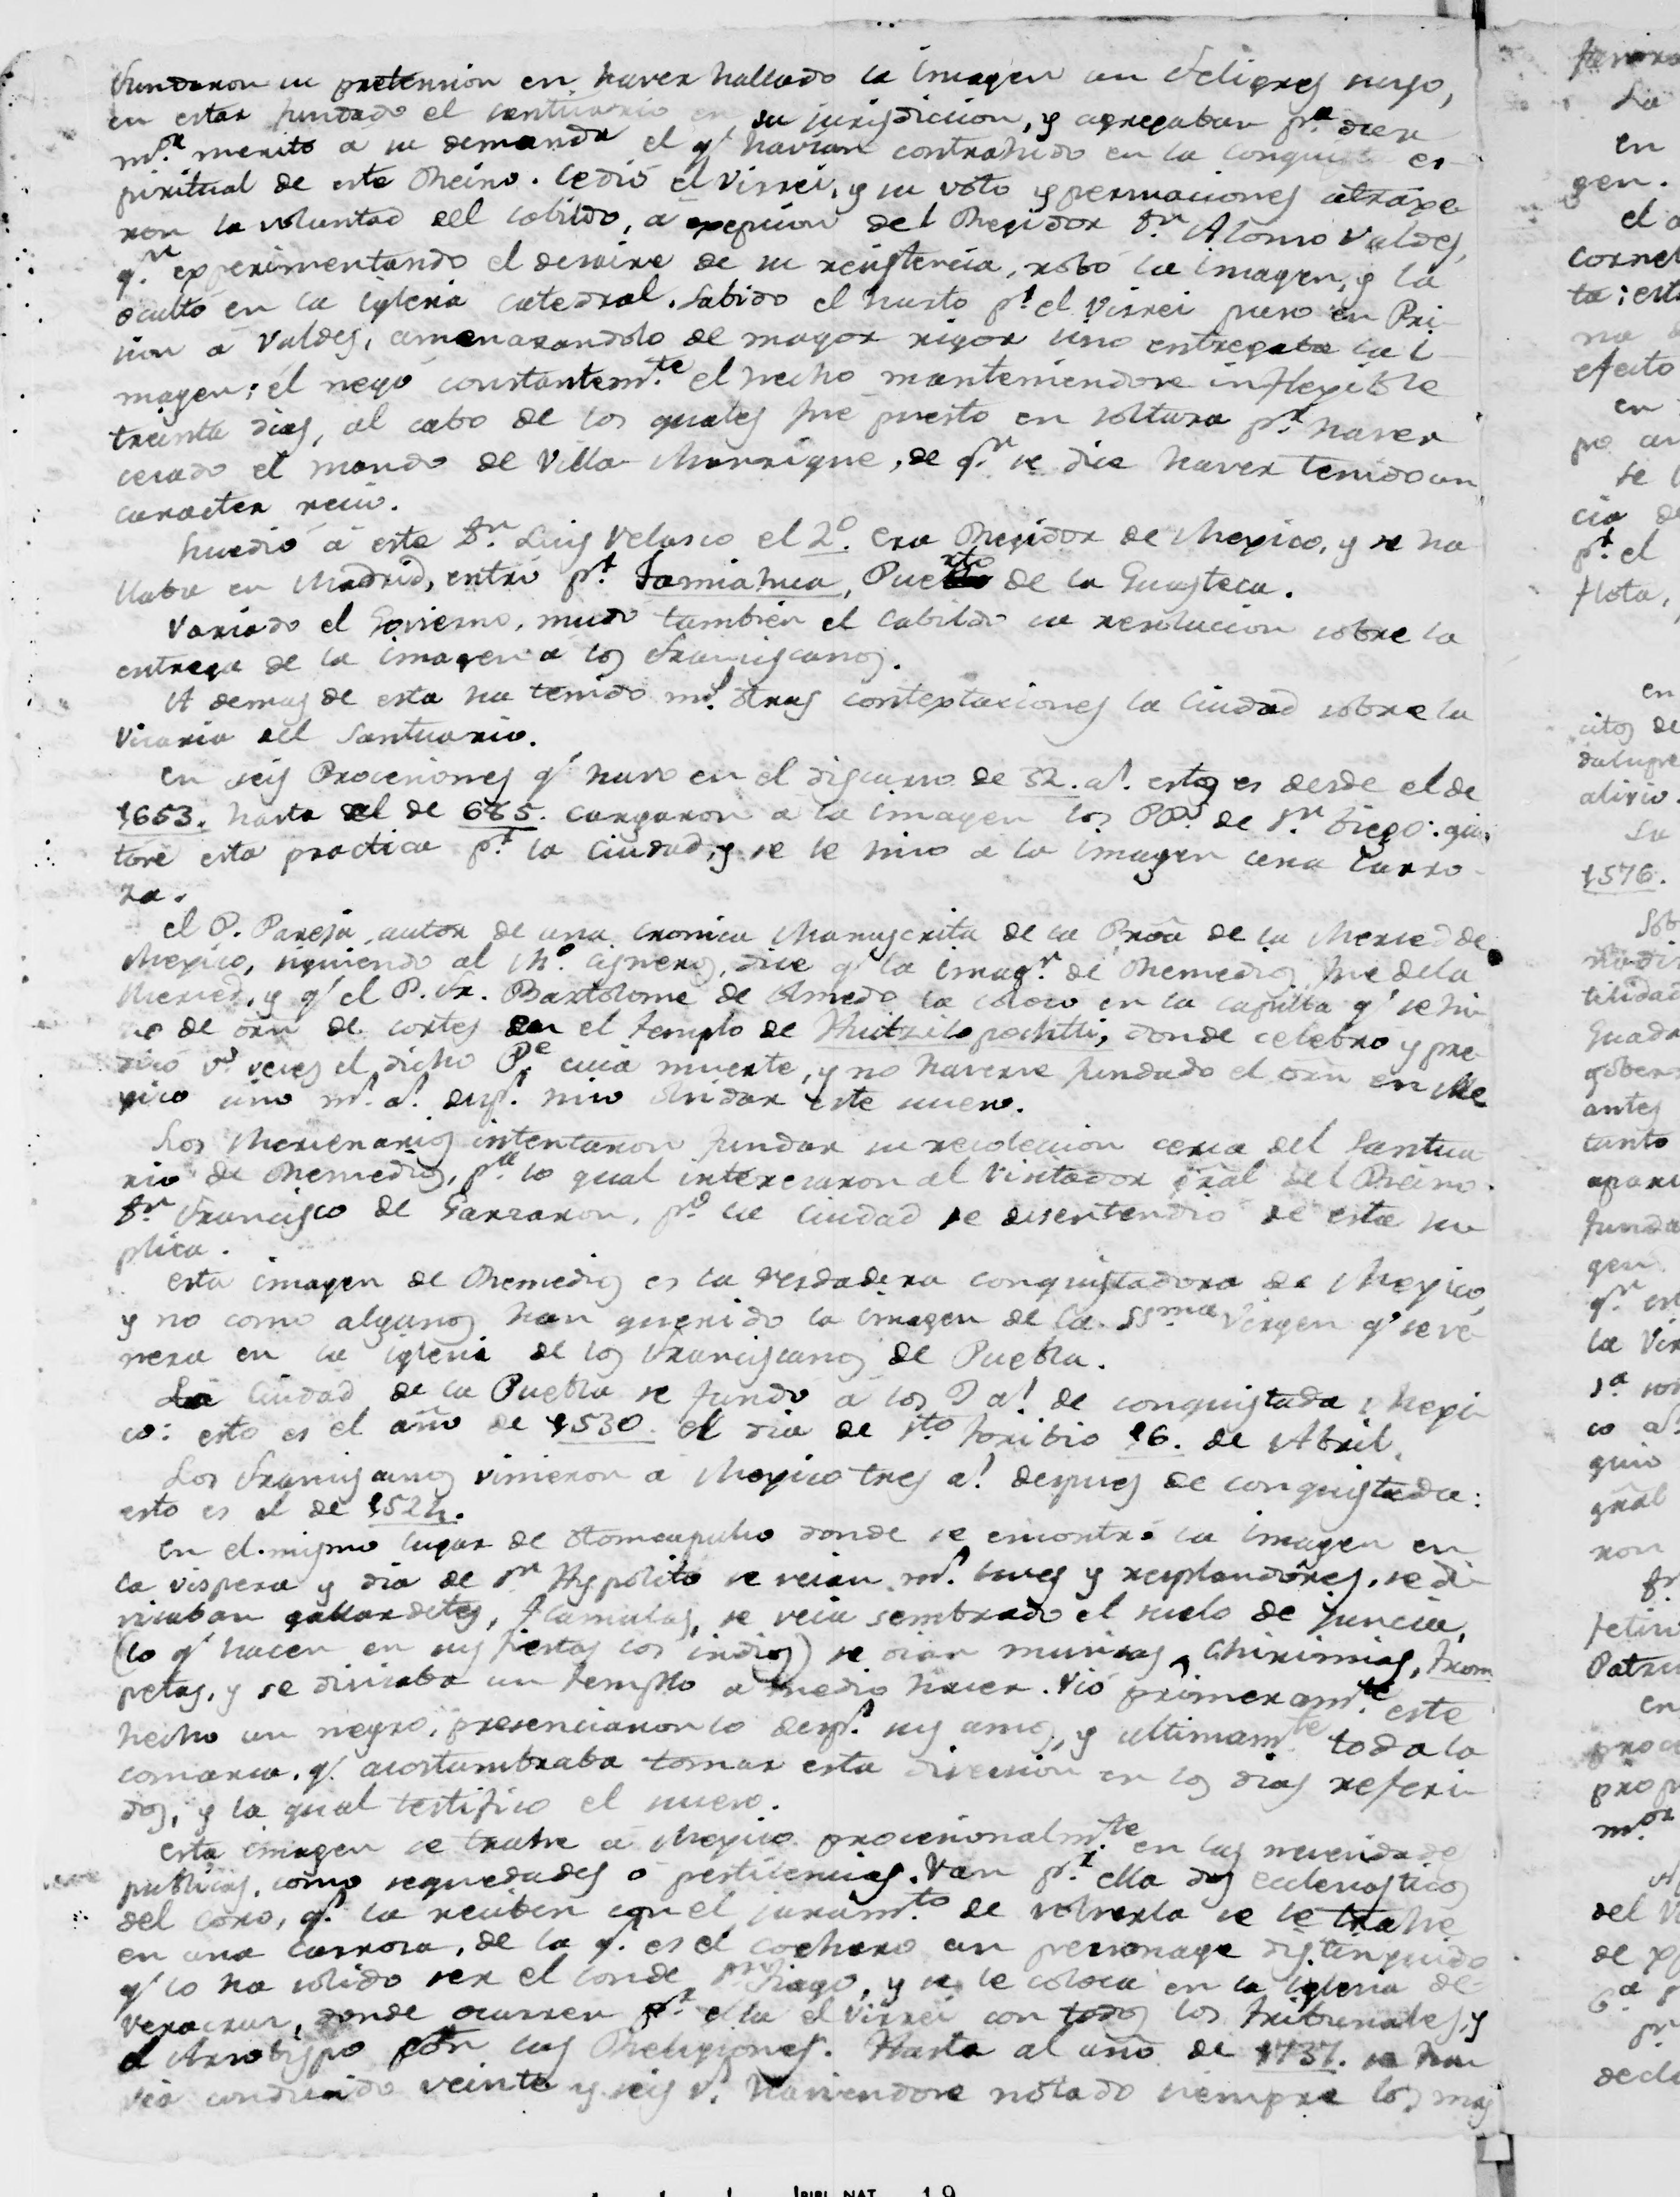 fundaron su pretension en haver hallado la Imagen un Feligres suyo,
en estar fundado el santuario en su jurisdiccion, y agregaban pª. dar
mºʳ. merito a su demanda el q' havian contrahido en la conquista es-
piritual de este Reino. Cedió el Virrei, y su voto y persuaciones atraxe-
ron la voluntad del cabildo, á excepcion del Regidor Dⁿ. Alonso Valdes,
qⁿ. experimentando el desaire de su resistencia, robó la Imagen, y la
ocultó en la Iglesia Catedral. Sabido el hurto pʳ. el Virrei puso en Pri-
sion á Valdes, amenazandolo de mayor rigor sino entregaba la I-
magen; él negó constantemᵗᵉ. el hecho manteniendose inflexible
treinta dias, al cabo de los quales fué puesto en soltura pʳ. haver
cesado el mando de Villa Manrique, de qⁿ. se dice haver tenido un
caracter recio.
Sucedió á este Dⁿ. Luis Velasco el 2º. era Regidor de Mexico, y se ha-
llaba en Madrid, entró pʳ. Tamiahua, Puerto de la Guasteca.
Variado el Govierno, mudó tambien el Cabildo su resolucion sobre la
entrega de la Imagen á los Franciscanos.
A demas de esta ha tenido mˢ. otras contextaciones la Ciudad sobre la
Vicaria del Santuario.
En seis Procesiones q' huvo en el discurso de 32. aˢ. esto es desde el de
1653. hasta el de 685. cargaron a la Imagen los PPˢ. de Sⁿ. Diego: qui-
tose esta practica pʳ. la Ciudad, y se le hizo a la Imagen una Carro-
za.
El P. Pareja, autor de una cronica Manuscrita de la Proâ de la Merced de
Mexico, siguiendo al Mº. Cisneros, dice q' la Imagⁿ. de Remedios fue de la
Merced, y q' el P. Fr. Bartolome de Olmedo la colocó en la capilla q' se hi-
zo de orn̄ de Cortes en el templo de Huitzilopochtli, donde celebró y pre-
dicó vˢ. veces el dicho Pᵉ. cuia muerte, y no haverse fundado el orn̄ en Me-
xico sino mˢ. aˢ. despˢ. hizo olvidar este suceso.
Los Mercenarios intentaron fundar su recoleccion cerca del Santua-
rio de Remedios, pª. lo qual interesaron al Visitador gral del Reino
Dⁿ. Francisco de Garzaron, pº. la Ciudad se desentendió de esta su-
plica.
Esta imagen de Remedios es la verdadera conquistadora de Mexico,
y no como algunos han querido la Imagen de la SSᵐᵃ. Virgen q' se ve-
nera en la Iglesia de los Franciscanos de Puebla.
La Ciudad de la Puebla se fundó á los 9 aˢ. de conquistada Mexi-
co: esto es el año de 1530. el dia de Sᵗᵒ. Toribio 16. de Abril.
Los Franciscanos vinieron a Mexico tres aˢ. despues de conquistada:
esto es el de 1524.
En el mismo lugar de Otomcapulco donde se encontró la Imagen en
la vispera y dia de Sⁿ. Hypolito se veian mˢ. luces y resplandores, se di-
visaban gallardetes, flamulas, se veia sembrado el suelo de juncia,
(lo q' hacen en sus fiestas los indios) se oian musicas, Chirimias, trom-
petas, y se divisaba un templo a medio hacer. Vió primeramᵗᵉ. este
hecho un negro, presenciaronlo despˢ. sus amos, y ultimamᵗᵉ toda la
comarca, q'. acostumbraba tomar esta diversion en los dias referi-
dos, y la qual testificó el suceso.
Esta imagen se trahe á Mexico procesionalmᵗᵉ. en las necesidades
publicas, como sequedades ó pestilencias. Van pʳ. ella dos ecclesiasticos
del coro, qˢ. la reciben con el juramᵗᵒ de volverla se le trahe
en una carroza, de la q'. es el cochero un personage distinguido
q' lo ha solido ser el conde Sⁿtiago, y se le coloca en la Iglesia de
Veracruz, donde ocurren pʳ. ella el Virrei con todos los tribunales, y
el Arzobispo con las Religiones. Hasta al año de 1737. se ha-
via conducido veinte y seis vˢ. haviendose notado siempre los mas